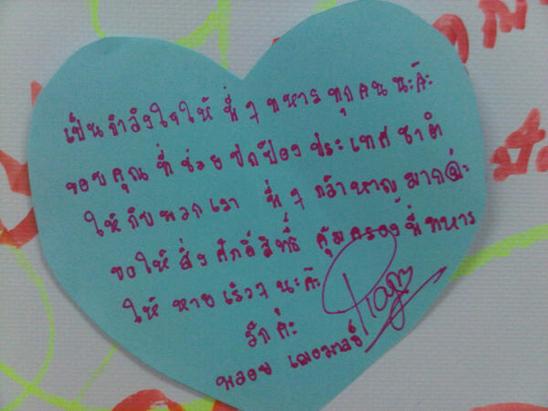 เป็นกำลังใจให้ พี่ ๆ ทหาร ทุก คน นะค๊ะ
ขอบคุณ ที่ ช่วย ปกป้อง ประเทศ ชาติ
ให้ กับ พวก เรา พี่ ๆ กล้าหาญ มาก@่ะ
ขอให้ สิ่ง ศักดิ์สิทธิ์ คุ้มครอง พี่ ทหาร
ให้ หาย เร็วๆ นะค๊ะ
รัก ค่ะ
พลอย เฌอมาลย์